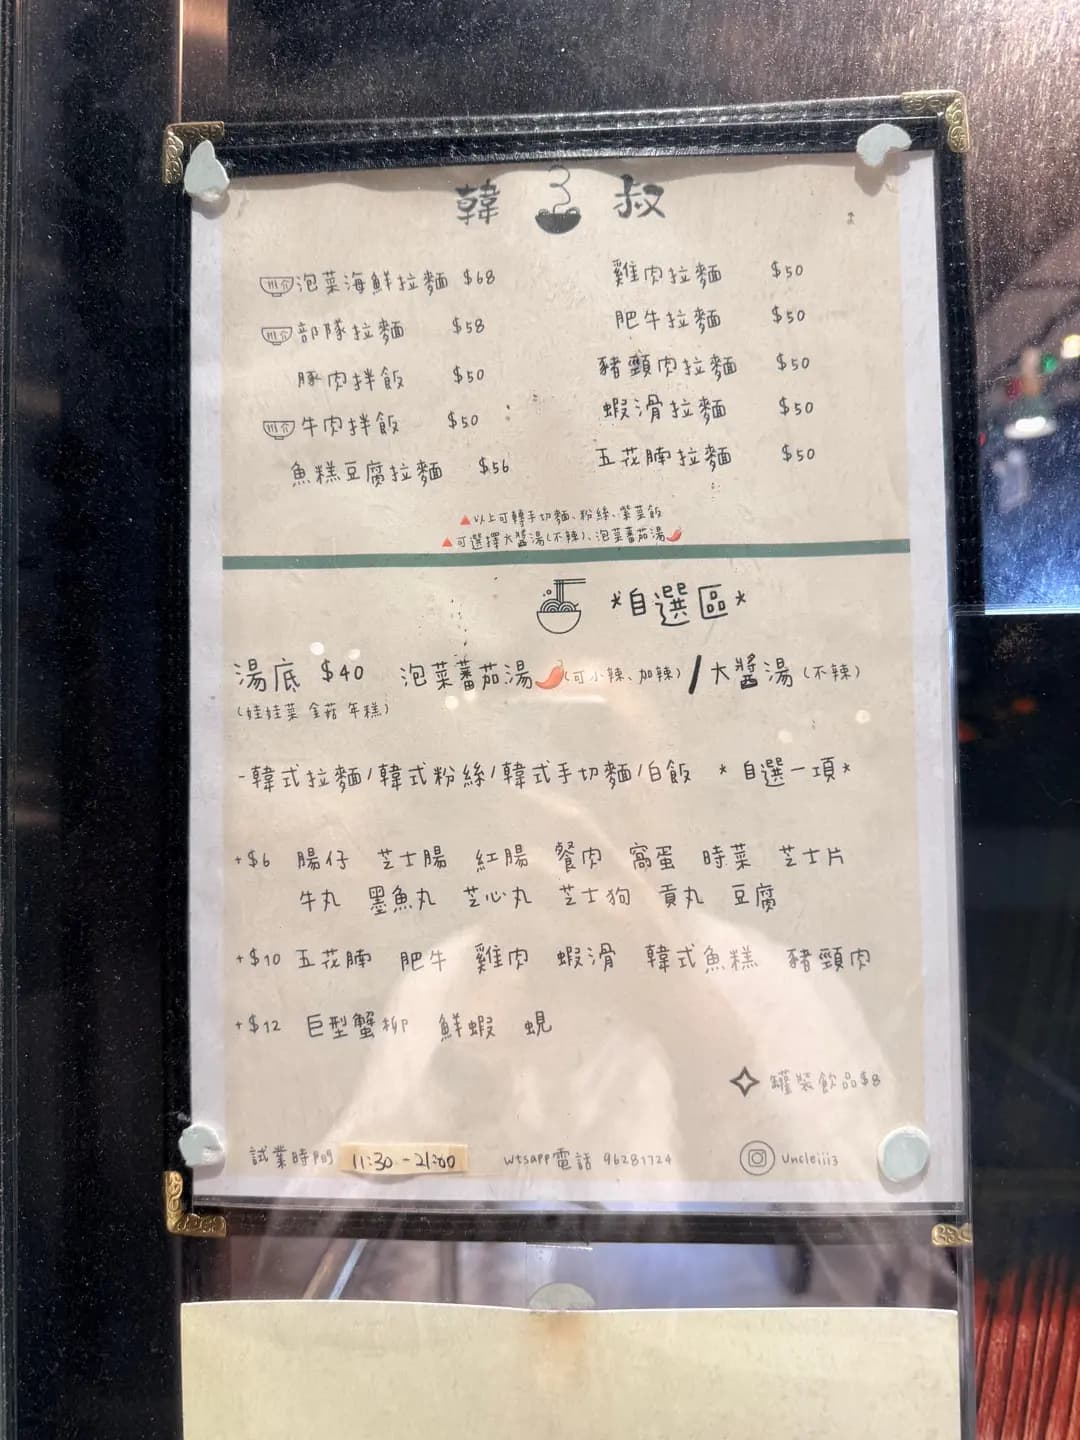 韓 叔
推介 泡菜海鮮拉麵 $68
推介 部隊拉麵 $58
豚肉拌飯 $50
推介 牛肉拌飯 $50
魚糕豆腐拉麵 $56
雞肉拉麵 $50
肥牛拉麵 $50
豬頸肉拉麵 $50
蝦滑拉麵 $50
五花腩拉麵 $50
▲以上可轉手切麵、粉絲、紫菜飯
▲可選擇大醬湯(不辣)、泡菜蕃茄湯🌶
*自選區*
湯底 $40 泡菜蕃茄湯🌶(可小辣、加辣) / 大醬湯 (不辣)
(娃娃菜 金菇 年糕)
-韓式拉麵/韓式粉絲/韓式手切麵/白飯 *自選一項*
+$6 腸仔 芝士腸 紅腸 餐肉 窩蛋 時菜 芝士片
牛丸 墨魚丸 芝心丸 芝士狗 貢丸 豆腐
+$10 五花腩 肥牛 雞肉 蝦滑 韓式魚糕 豬頸肉
+$12 巨型蟹柳 鮮蝦 蜆
罐裝飲品$8
試業時間 11:30-21:00 wtsapp電話 96281724 Uncleiii3